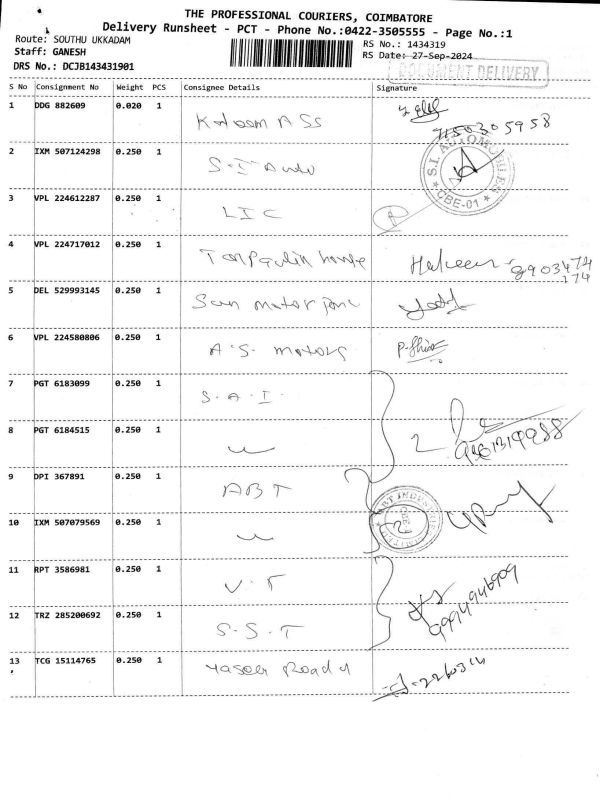 THE PROFESSIONAL COURIERS, COIMBATORE
Delivery Runsheet - PCT - Phone No.:0422-3505555 - Page No.:1
Route: SOUTHU UKKADAM
RS No.: 1434319
Staff: GANESH
RS Date: 27-Sep-2024
DRS No.: DCJB143431901
DOCUMENT DELIVERY
S No Consignment No Weight PCS Consignee Details Signature
1 DDG 882609 0.020 1
7150305958
2 IXM 507124298 0.250 1 S.I Auto
S.I. AUTOMOBILES
CBE-01
3 VPL 224612287 0.250 1 LIC
4 VPL 224717012 0.250 1 Tarpaulin house
8903474
174
5 DEL 529993145 0.250 1 Sun motor
6 VPL 224580806 0.250 1 A.S. motors
7 PGT 6183099 0.250 1 S.A.I.
8 PGT 6184515 0.250 1 2
9 DPI 367891 0.250 1 ABT
ABT INDUSTRIES LIMITED
10 IXM 507079569 0.250 1
11 RPT 3586981 0.250 1 V.T
9994946909
12 TRZ 285200692 0.250 1 S.S.T
13 TCG 15114765 0.250 1